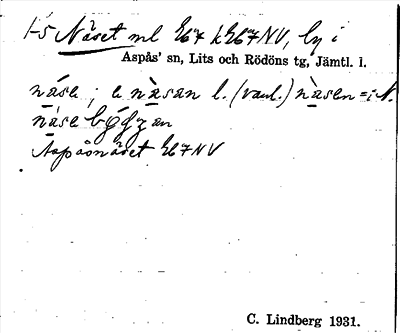 1-5 Näset ml 767 k767NV, by i
Aspås' sn, Lits och Rödöns tg, Jämtl. l.
nä́se ; e nä̀san l. (vanl.) nä̀sen = i N.
nä́se bǿgyan
Aspåsnäset 767NV
C. Lindberg 1931.